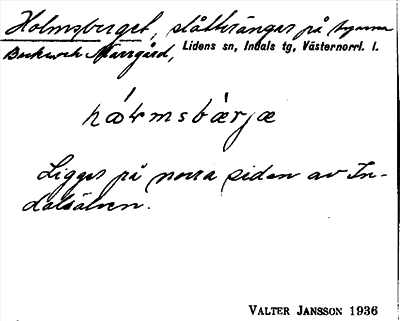 Holmsberget, slåttersängar på byarna
Backe och Näsrgård, Lidens sn, Indals tg, Västernorrl. l.
hålmsbærjæ
Ligger på norra sidan av In-
dalsälven.
VALTER JANSSON 1936